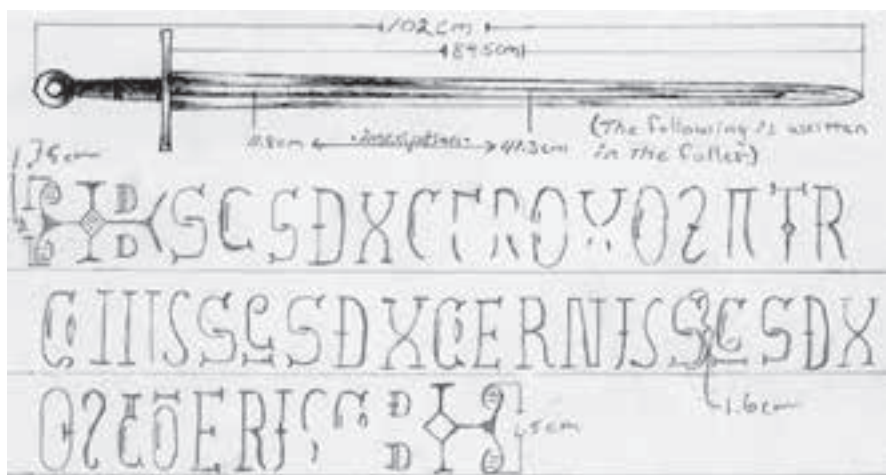 102cm
84.5cm
11.8cm Inscription 41.3cm (The following is written
in the fuller)
1.75cm
D
D
SCSDXC ROXOSПTR
CIIISSCSDXCERNISSCSDX
1.6cm
OS ERI
D
D
.5cm